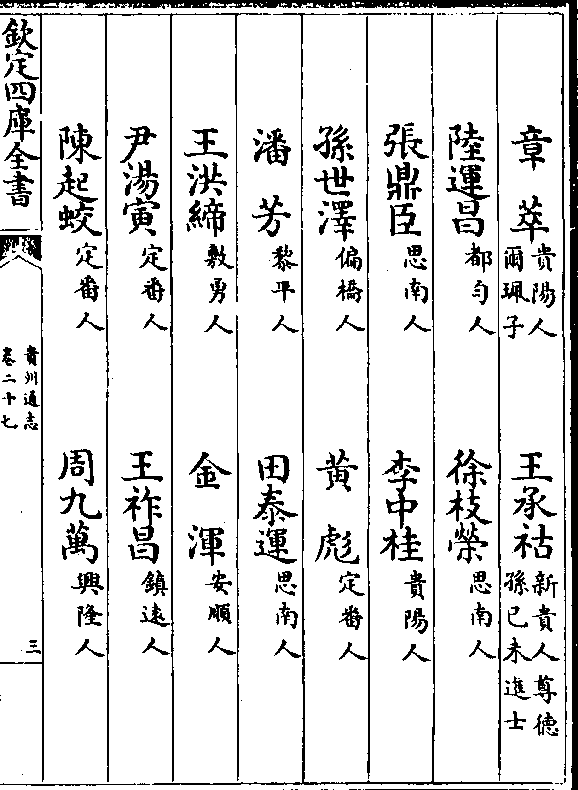 章萃貴陽人爾珮子 王承祜新貴人尊德孫己未進士
陸運昌都勻人 徐枝榮思南人
張鼎臣思南人 李中桂貴陽人
孫世澤偏橋人 黃彪定番人
潘芳黎平人 田泰運思南人
王洪締敷勇人 金渾安順人
尹湯寅定番人 王祚昌鎮遠人
陳起蛟定番人 周九萬興隆人
欽定四庫全書
貴州通志
卷二十七
三